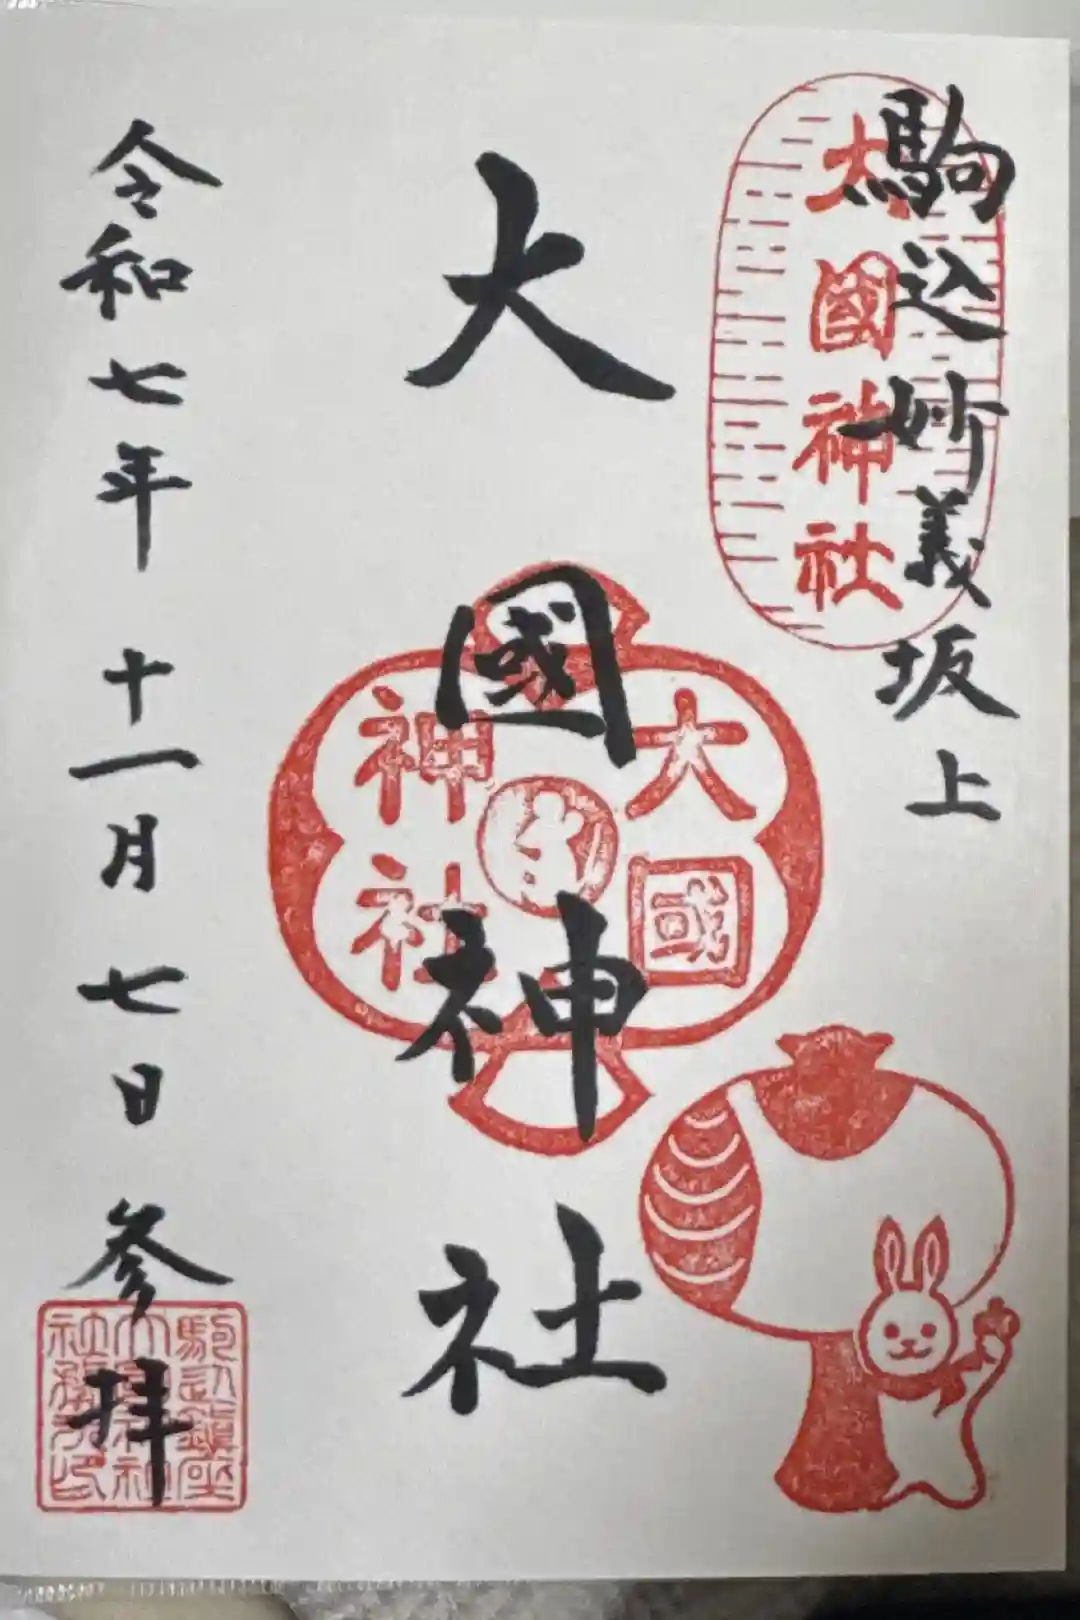 駒込妙義坂上
大國神社
大國
神社
大國神社
令和七年十一月七日参拝
駒込鎮座
大國神社
社務所印